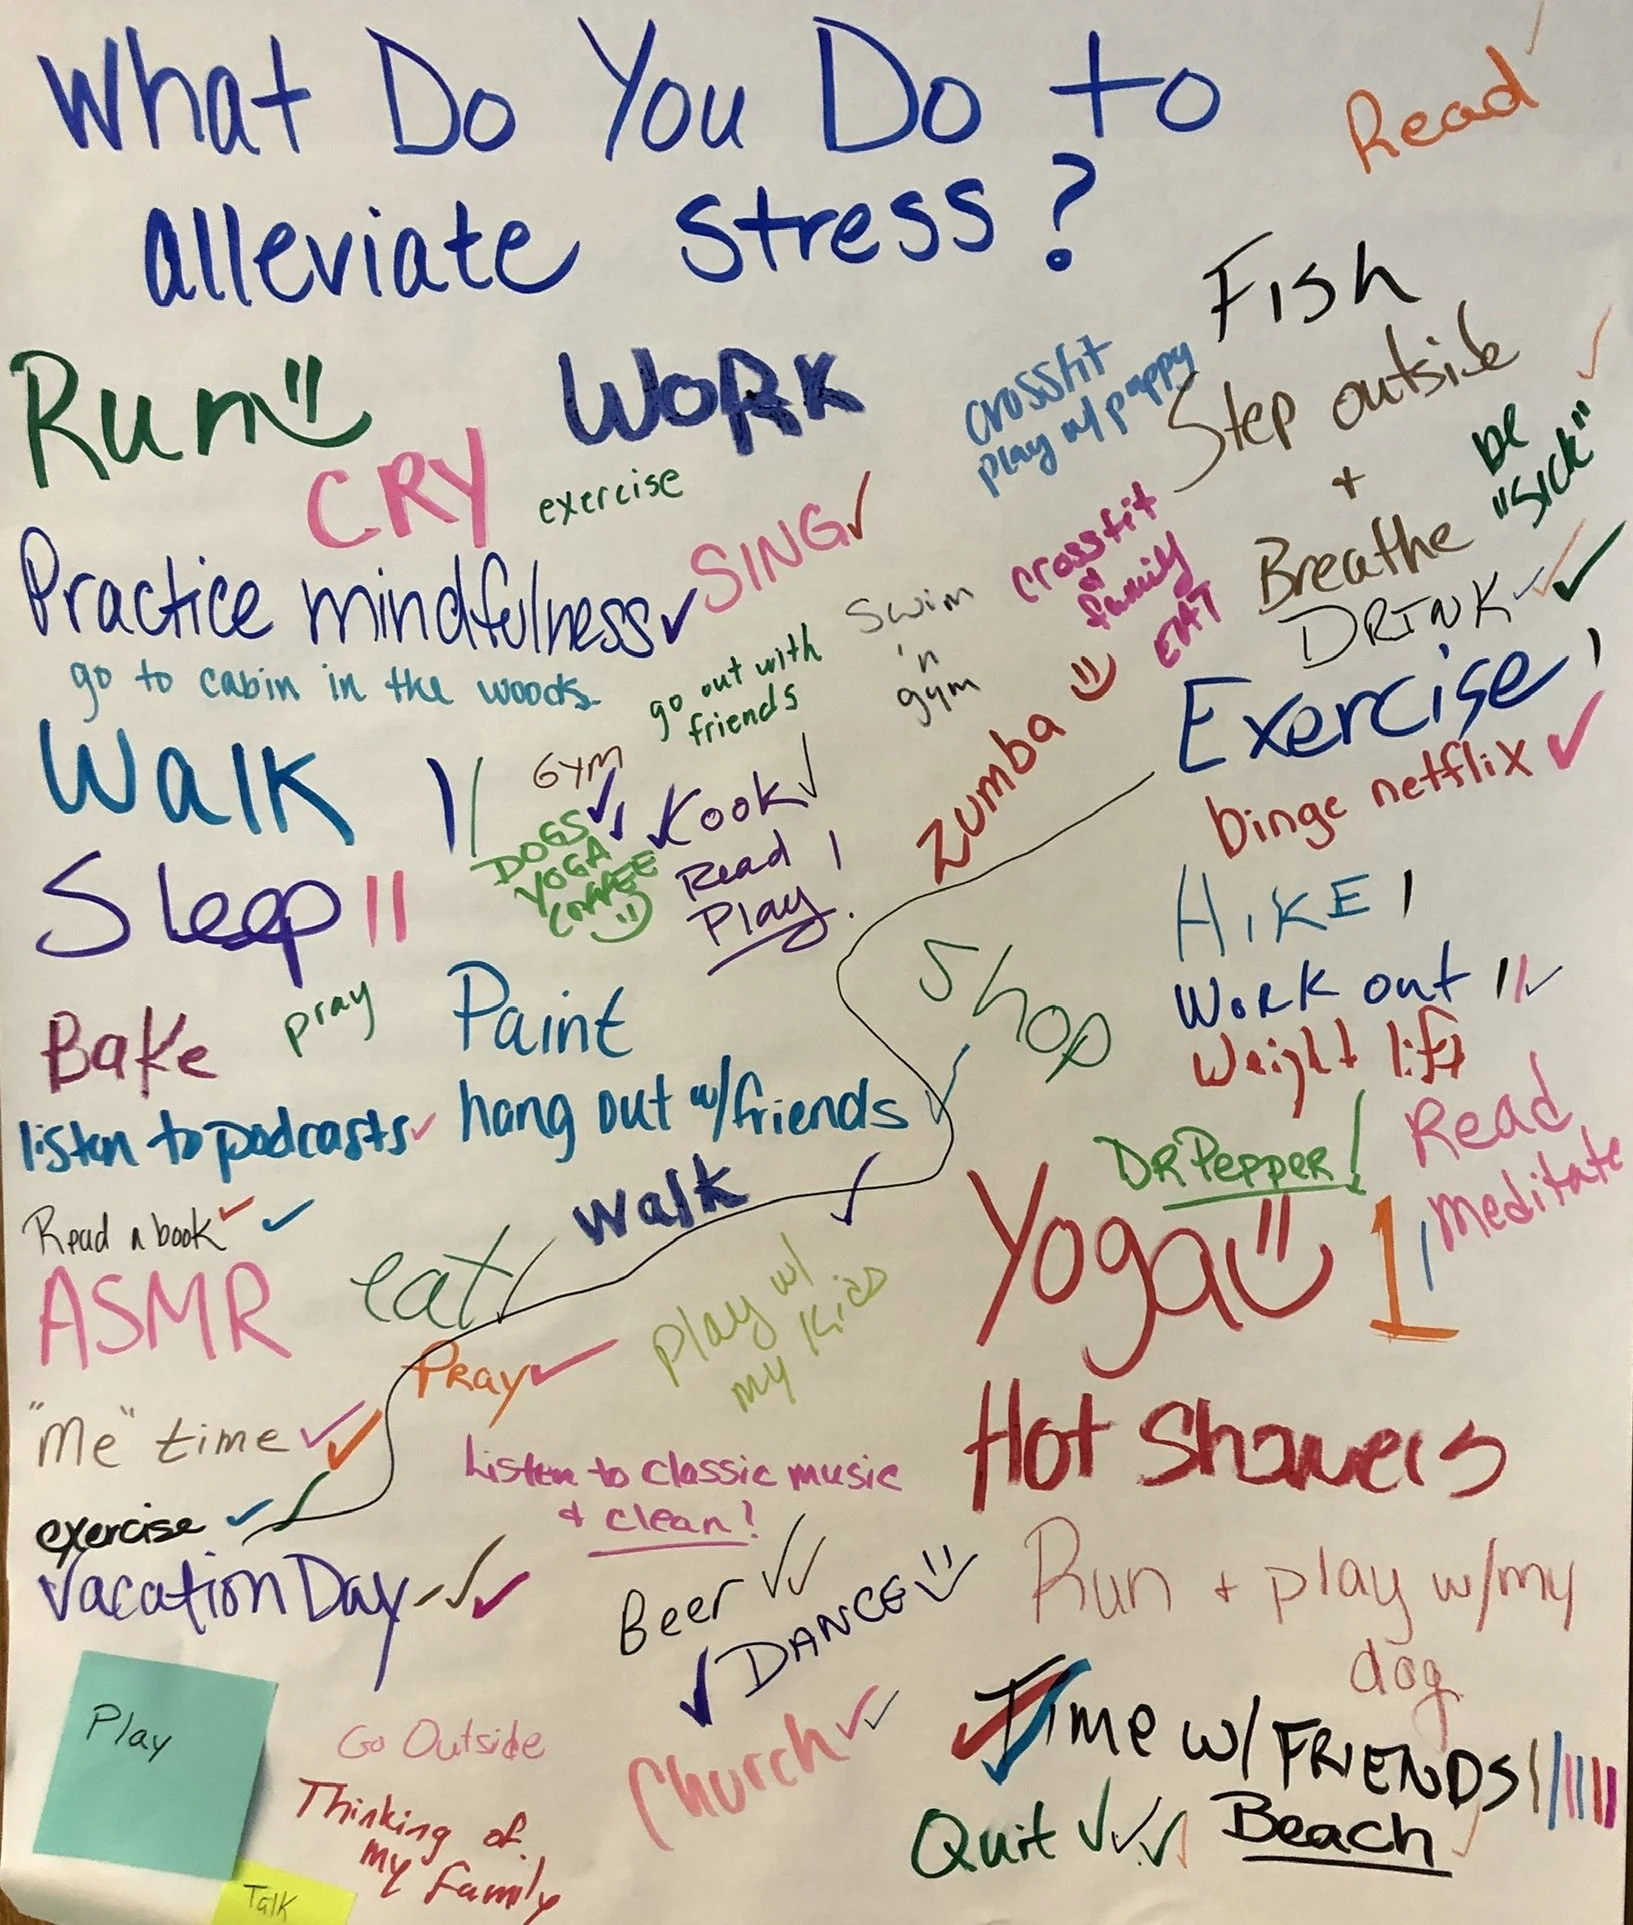 What Do You Do to
alleviate stress?
Read
Fish
Run
WORK
crossfit
play w/ puppy
Step outside
+
Breathe
be
"sick"
CRY
exercise
SING
crossfit
family
EAT
DRINK
Practice mindfulness
Swim
'n
gym
go to cabin in the woods
go out with
friends
Zumba
Exercise
binge netflix
Walk
Gym
DOGS
YOGA
COFFEE
Kook
Read
Play
Sleep
HIKE
Shop
Work out
Weight lift
Bake
pray
Paint
listen to podcasts
hang out w/friends
DR PEPPER
Read
meditate
Read a book
walk
Yoga
1
ASMR
eat
play w/
my kids
Pray
Hot Showers
"Me" time
Listen to classic music
& clean!
exercise
Vacation Day
Beer
DANCE
Run + play w/my
dog
Play
Go Outside
Church
Time w/ FRIENDS
Thinking of
my family
Quit
Beach
Talk